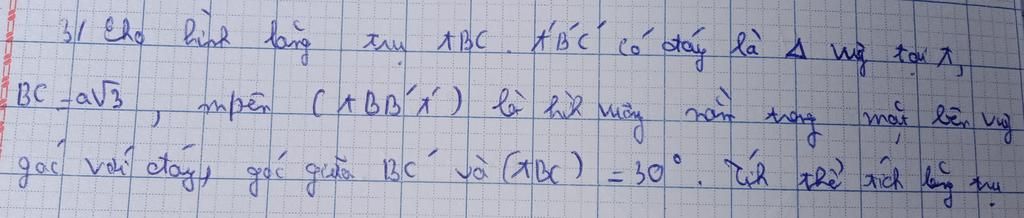 3/ Cho hình lăng trụ ABC.A'B'C' có đáy là Δ vg tại A,
BC = a√3, mpên (ABB'A') là hìh vuông nằm trong mặt bên vug
góc với đáy, góc giữa BC' và (ABC) = 30°. Tíh thể tích lăng trụ.